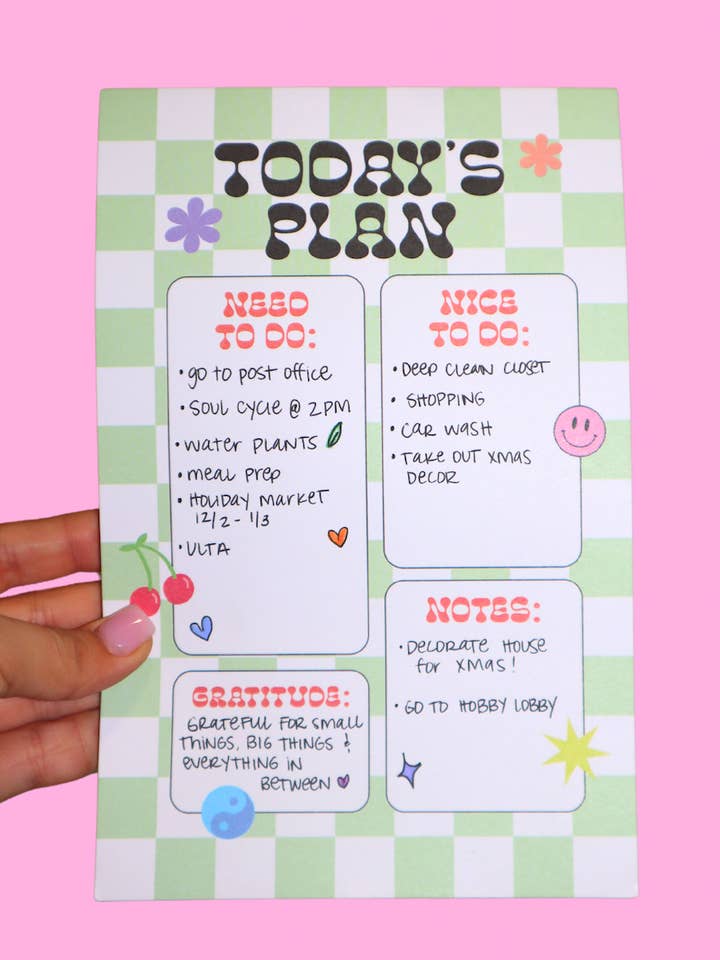 TODAY'S
PLAN
NEED
TO DO:
• go to post office
• SOUL CYCLE @ 2PM
• WATER PLANTS
• meal prep
• HOLIDAY MARKET
12/2 - 1/3
• ULTA
NICE
TO DO:
• DEEP CLEAN CLOSET
• SHOPPING
• CAR WASH
• TAKE OUT XMAS
DECOR
GRATITUDE:
GRATEFUL FOR SMALL
THINGS, BIG THINGS &
EVERYTHING IN
BETWEEN
NOTES:
• DECORATE HOUSE
for XMAS!
• GO TO HOBBY LOBBY